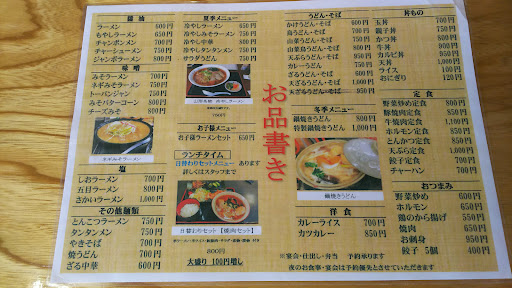 醤油
ラーメン 600円
もやしラーメン 700円
チャンポンメン 700円
チャーシューメン 750円
ジャンボラーメン 800円
味噌
みそラーメン 700円
ネギみそラーメン 750円
トーバンジャン 750円
みそバターコーン 800円
チーズみそ 800円
ネギみそラーメン
塩
しおラーメン 700円
五目ラーメン 800円
さかいラーメン 1,000円
その他麺類
とんこつラーメン 750円
タンタンメン 750円
やきそば 700円
焼うどん 700円
ざる中華 700円
夏季メニュー
冷やしラーメン 650円
冷やしみそラーメン 750円
冷やし中華 800円
冷やしタンタンメン 850円
サラダうどん 850円
お子様メニュー
お子様ラーメンセット 650円
ランチタイム
日替わりセットメニュー あります
詳しくはスタッフまで
日替わりセット【焼肉セット】
800円
大盛り 100円増し
お品書き
うどん・そば
かけうどん・そば
鳥うどん・そば
山菜うどん・そば
山菜鳥うどん・そば
天ぷらうどん・そば
カレーうどん
ざるうどん・そば
天ざるうどん・そば
冬季メニュー
鍋焼きうどん 800円
特製鍋焼きうどん 1,000円
鍋焼きうどん
洋食
カレーライス 700円
カツカレー 850円
丼もの
玉丼
親子丼
かつ丼
牛丼
カルビ丼
天丼
ライス
おにぎり
定食
野菜炒め定食 800円
豚焼肉定食
牛焼肉定食
ホルモン定食
とんかつ定食
天ぷら定食
餃子定食
チャーハン
おつまみ
野菜炒め 600円
ホルモン 650円
鶏のから揚げ 550円
焼肉 650円
お刺身 950円
餃子 5個 400円
※宴会・仕出し・弁当 予約承ります
夜のお食事・宴会は予約優先とさせていただきます